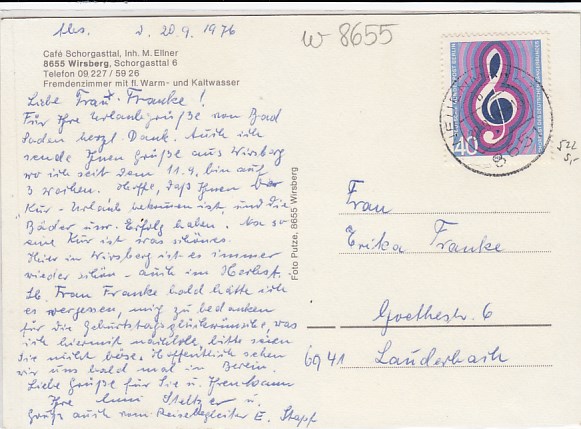 d. 20.9.1976
W 8655
Café Schorgasttal, Inh. M. Ellner
8655 Wirsberg, Schorgasttal 6
Telefon 09 227 / 59 26
Fremdenzimmer mit fl. Warm- und Kaltwasser
Liebe Frau Franke!
Für Ihre Urlaubsgrüße von Bad
Soden herzl. Dank. Auch ich
sende Ihnen Grüße aus Wirsberg
wo ich seit dem 11.9. bin auf
3 Wochen. Hoffe, daß Ihnen der
Kur-Urlaub bekommen ist, und die
Bäder usw. Erfolg haben. Na so
eine Kur ist was schönes.
Hier in Wirsberg ist es immer
wieder schön - auch im Herbst.
Lb. Frau Franke bald hätte ich
es vergessen, mich zu bedanken
für die Geburtstagsglückwünsche, was
ich hiermit nachhole, bitte seien
Sie nicht böse. Hoffentlich sehen
wir uns bald mal in Berlin.
Liebe Grüße für Sie u. Ihren Mann
Ihre Steltzer u.
Gruß auch vom Reisebegleiter E. Stapf
Foto Putze, 8655 Wirsberg
DEUTSCHE BUNDESPOST BERLIN
40
522
5,-
Frau
Erika Franke
Goethestr. 6
6941 Lauderbach